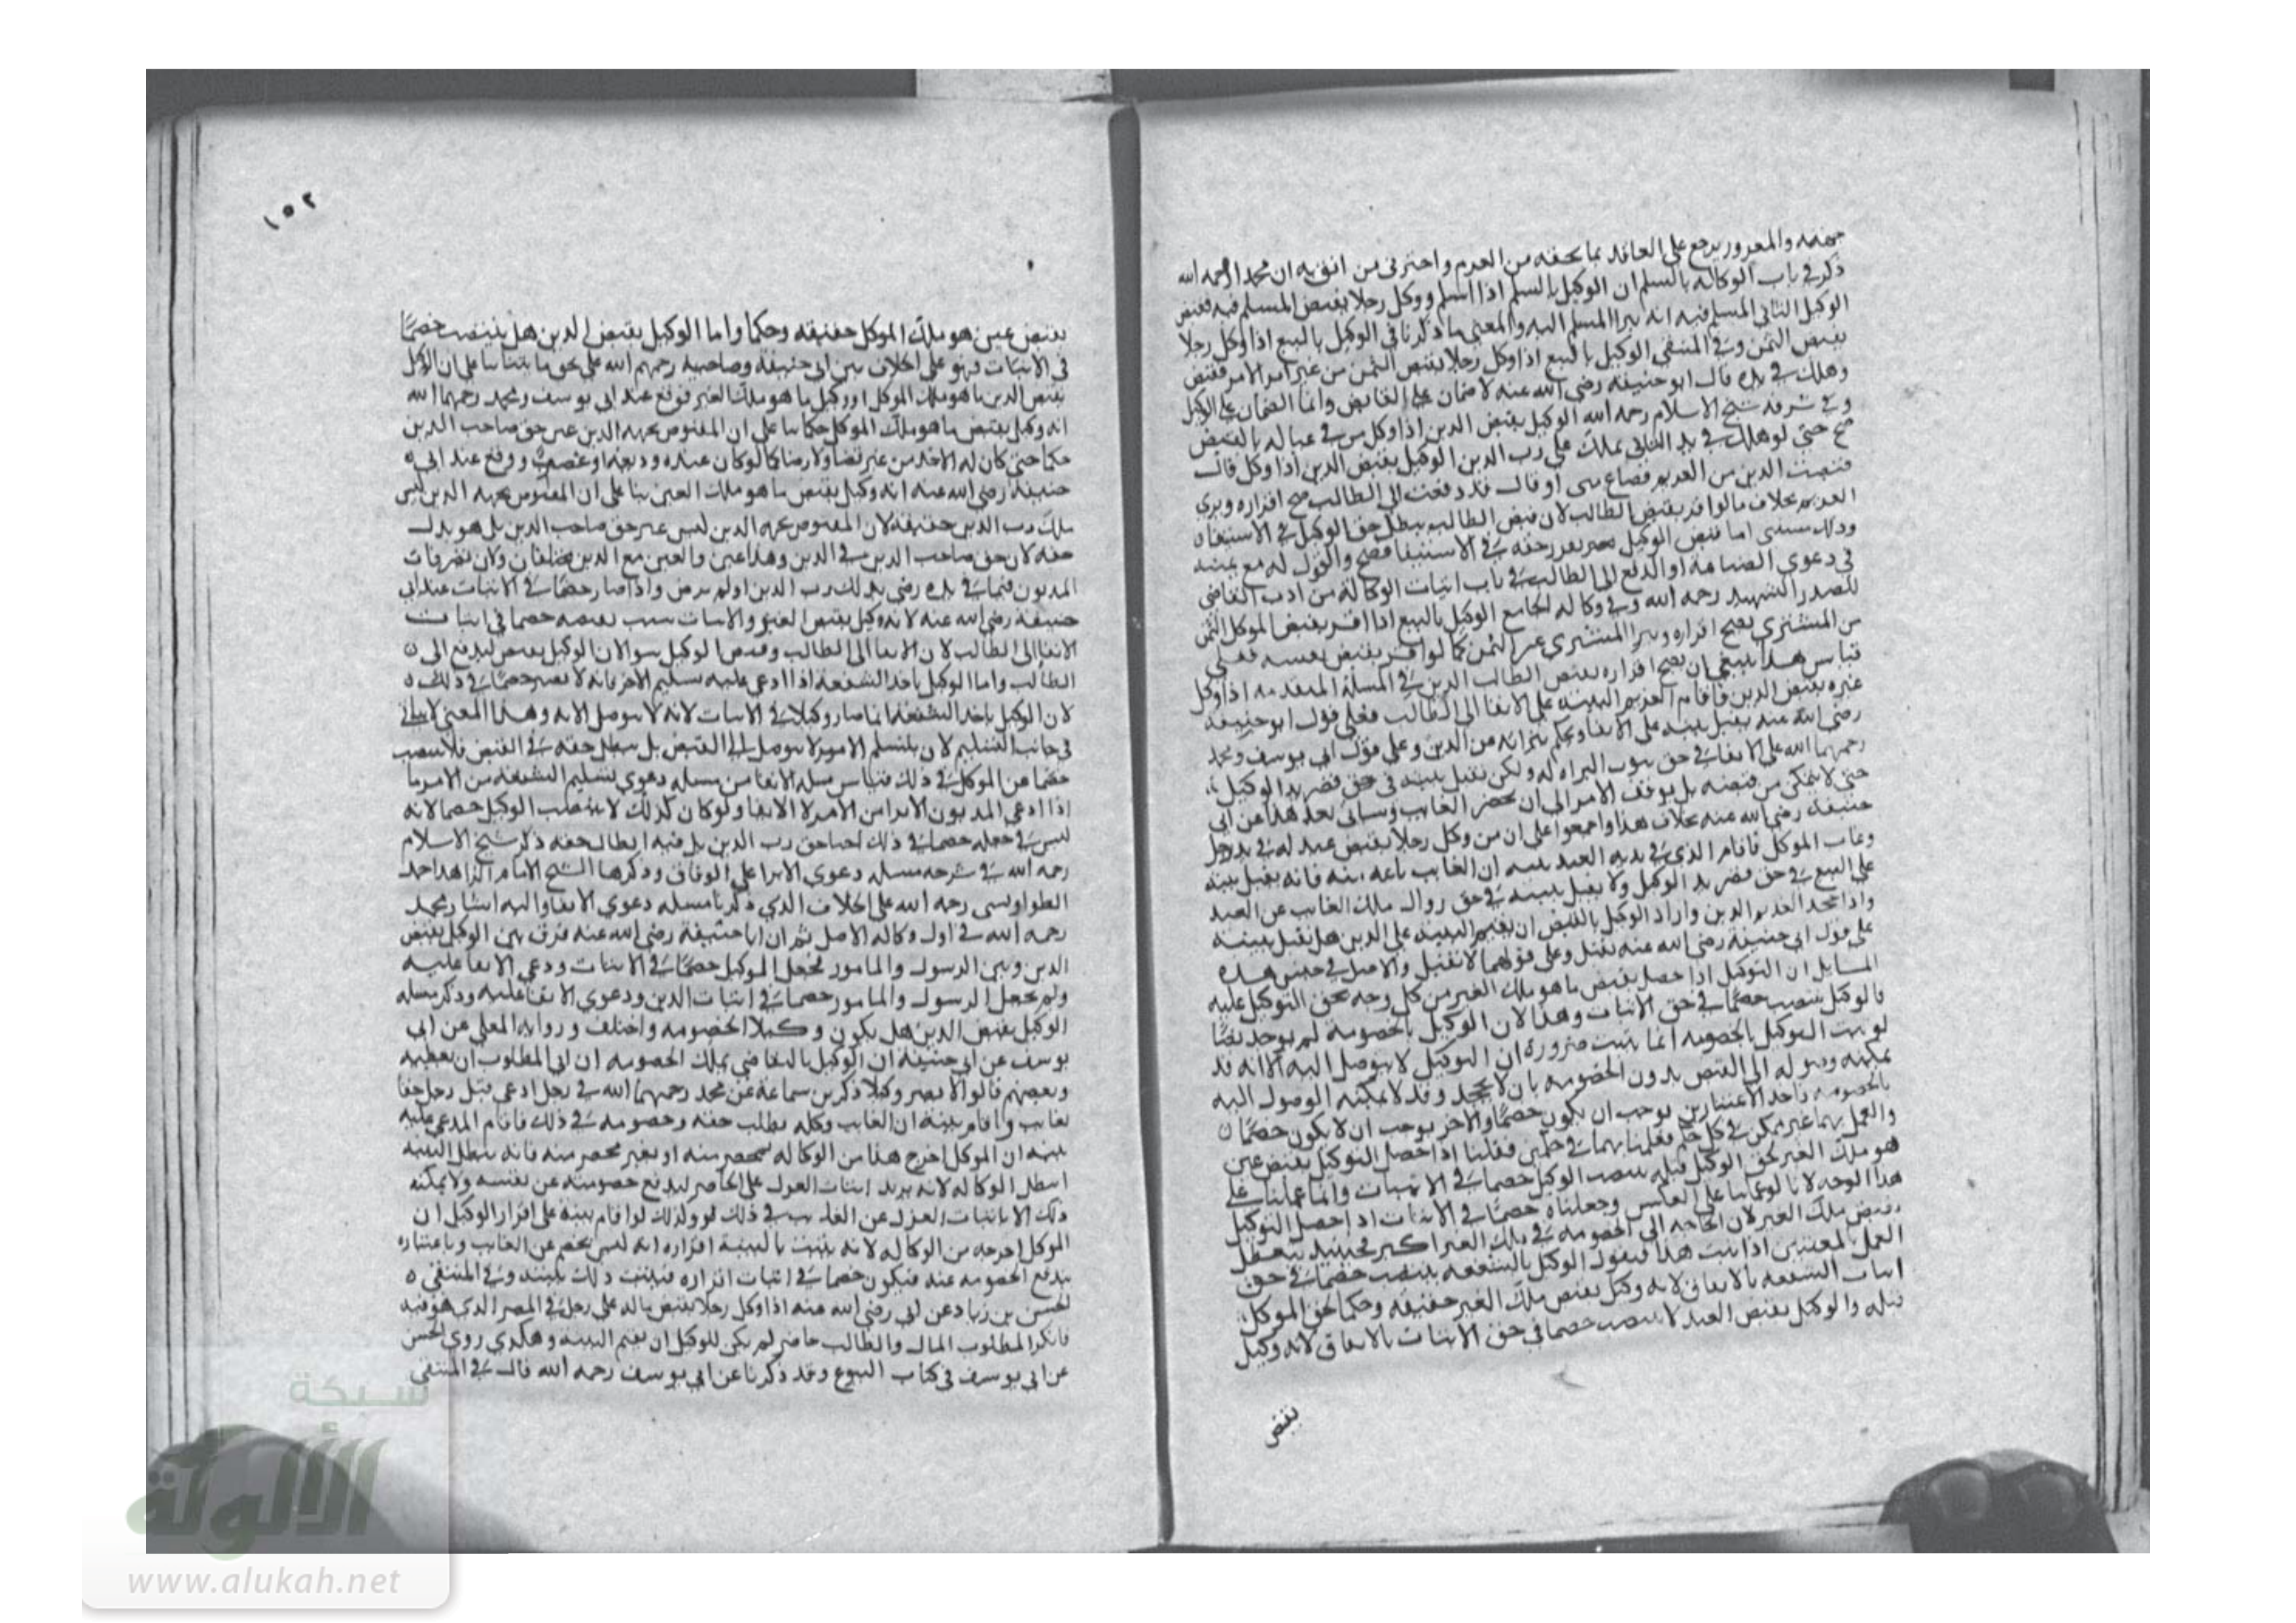 جهته والمغرور يرجع على العاقد بما لحقه من الغرم واخبرني من اثق به ان محمدا رحمه الله
ذكر في باب الوكالة بالسلم ان الوكيل بالسلم اذا اسلم ووكل رجلا بقبض المسلم فيه فقبض
الوكيل الثاني المسلم فيه انه يبرا المسلم اليه والمعنى ما ذكرنا في الوكيل بالبيع اذا وكل رجلا
بقبض الثمن وفي المنتقى الوكيل بالبيع اذا وكل رجلا بقبض الثمن من غير امر الامر فقبض
وهلك في يده قال ابو حنيفة رضي الله عنه لا ضمان على القابض وانما الضمان على الوكيل
وفي شرقه شيخ الاسلام رحمه الله الوكيل بقبض الدين اذا وكل من في عياله بالقبض
صح حتى لو هلك في يد الثاني يملك على رب الدين الوكيل بقبض الدين اذا وكل قال
قبضت الدين من الغريم فضاع مني او قال قد دفعت الى الطالب صح اقراره وبري
الغريم بخلاف ما لو اقر بقبض الطالب لان قبض الطالب يبطل حق الوكيل في الاستيفا
اما قبض الوكيل حقه في الاستيفا فصح والقول له مع يمينه
في دعوى الضياع او الدفع الى الطالب في باب اثبات الوكالة من ادب القاضي
للصدر الشهيد رحمه الله وفي وكالة الجامع الوكيل بالبيع اذا اقر بقبض الموكل الثمن
من المشتري يصح اقراره ويبرا المشتري عن الثمن كما لو اقر بقبض نفسه فعلى
قياس هذا ينبغي ان يصح اقراره بقبض الطالب الدين في المسلة المتقدمة اذا وكل
غيره بقبض الدين فاقام الغريم البينة على الايفا الى الطالب فعلى قول ابو حنيفة
رضي الله عنه يقبل بينة على الايفا ويحكم ببرائه من الدين وعلى قول ابي يوسف ومحمد
رحمهما الله على الايفا في حق ثبوت البراه له ولكن تقبل بينته في حق قصر يد الوكيل
حتى لا يتمكن من قبضه بل يوقف الامر الى ان يحضر الغايب وسياتي بعد هذا عن ابي
حنيفة رضي الله عنه بخلاف هذا واجمعوا على ان من وكل رجلا بقبض عبد له في يد رجل
وغاب الموكل فاقام الذي في يديه العبد بينة ان الغايب باعه منه فانه يقبل بينته
على البيع في حق قصر يد الوكيل ولا يقبل بينته في حق زوال ملك الغايب عن العبد
واذا جحد الغريم الدين واراد الوكيل بالقبض ان يقيم البينة على الدين هل تقبل بينته
على قول ابي حنيفة رضي الله عنه تقبل وعلى قولهما لا تقبل والاصل في جنس هذه
المسايل ان التوكيل اذا حصل بقبض ما هو ملك الغير من كل وجه بحق التوكيل عليه
فالوكيل ينتصب خصما في حق الاثبات وهذا لان الوكيل بالخصومة لم يوجد نصا
لو ثبت التوكيل بالخصومة انما يثبت ضرورة ان التوكيل لا يتوصل اليه الا انه قد
يمكنه وصوله الى القبض بدون الخصومة بان لا يجحد وقد لا يمكنه الوصول اليه
بالخصومة فاحد الاعتبارين يوجب ان يكون خصما والاخر يوجب ان لا يكون خصما
والعمل بهما غير ممكن في كل حكم فعلمنا بهما في حكمين فقلنا اذا حصل التوكيل بقبض عين
هو ملك الغير لحق الوكيل قبله ينتصب الوكيل خصما في الاثبات وانما عملنا على
هذا الوجه لانا لو عملنا على العكس وجعلناه خصما في الاثبات اذا حصل التوكيل
بقبض ملك الغير لان الحاجة الى الخصومة في ملك الغير اكثر فحينيذ يتعطل
العمل بالمعنيين اذا ثبت هذا فنقول الوكيل بالشفعة ينتصب خصما في حق
اثبات الشفعة بالاتفاق لانه وكيل بقبض ملك الغير حقيقة وحكما لحق الموكل
قبله والوكيل بقبض العبد لا ينتصب خصما في حق الاثبات بالاتفاق لانه وكيل
بقبض
١٥٢
بقبض عين هو ملك الموكل حقيقة وحكما واما الوكيل بقبض الدين هل ينتصب خصما
في الاثبات فهو على الخلاف بين ابي حنيفة وصاحبيه رحمهم الله على نحو ما بينا بنا على ان الوكيل
بقبض الدين ما هو ملك الموكل او وكيل ما هو ملك الغير فوقع عند ابي يوسف ومحمد رحمهما الله
انه وكيل بقبض ما هو ملك الموكل حكما بنا على ان المقبوض بجهة الدين عين حق صاحب الدين
حكما حتى كان له الاخذ من غير قضا ولا رضا كما لو كان عنده وديعة او غصب ووقع عند ابي
حنيفة رضي الله عنه انه وكيل بقبض ما هو ملك الغير بنا على ان المقبوض بجهة الدين ليس
ملك رب الدين حقيقة لان المقبوض بجهة الدين ليس عين حق صاحب الدين بل هو بدل
حقه لان حق صاحب الدين في الدين وهذا عين والعين مع الدين مختلفان ولان تصرفات
المديون فيما في يده رضي بذلك رب الدين او لم يرض واذا صار خصما في الاثبات عند ابي
حنيفة رضي الله عنه لانه وكيل بقبض الغير خصما في اثبات
الايفا الى الطالب لان الايفا الى الطالب وقبض الوكيل سوا لان الوكيل يقبض ليدفع الى
الطالب واما الوكيل باخذ الشفعة اذا ادعى عليه تسليم الامر فانه لا يصير خصما في ذلك
لان الوكيل باخذ الشفعة انما صار وكيلا في الاثبات لانه لا يتوصل الا به وهذا المعنى لا ياتي
في جانب التسليم لان بتسليم الامر لا يتوصل الى القبض بل يبطل حقه في القبض فلا ينتصب
خصما عن الموكل في ذلك قياس مسلة الايفا من مسلة دعوى تسليم الشفعة من الامر ما
اذا ادعى المديون الابرا من الامر لا الايفا ولو كان كذلك لا ينتصب الوكيل خصما لانه
ليس في جعله خصما في ذلك احيا حق رب الدين بل فيه ابطال حقه ذكر شيخ الاسلام
رحمه الله في شرحه مسلة دعوى الابرا على الوفاق وذكرها الشيخ الامام الزاهد احمد
الطواويسي رحمه الله على الخلاف الذي ذكرنا مسلة دعوى الايفا واليه اشار محمد
رحمه الله في اول وكالة الاصل ثم ان ابا حنيفة رضي الله عنه فرق بين الوكيل بقبض
الدين وبين الرسول والمامور فجعل الموكيل خصما في الاثبات ودعي الايفا عليه
ولم يجعل الرسول والمامور خصما في اثبات الدين ودعوى الايفا عليه وذكر مسلة
الوكيل بقبض الدين هل يكون وكيلا الخصومة واختلف ورواية المعلى عن ابي
يوسف عن ابي حنيفة ان الوكيل بالتقاضي يملك الخصومة ان ابى المطلوب ان يعطيه
وبعضهم قالوا لا يصير وكيلا ذكر بن سماعة عن محمد رحمهما الله في رجل ادعى قبل رجل حقا
لغايب واقام بينة ان الغايب وكله بطلب حقه وخصومه في ذلك فاقام المدعى عليه
بينة ان الموكل اخرج هذا من الوكالة بمحضر منه او بغير محضر منه فانه يبطل البينة
ابطل الوكالة لانه يريد اثبات العزل على الحاضر ليدفع خصومته عن نفسه ولا يمكنه
ذلك الا باثبات العزل عن الغايب في ذلك وكذلك لو اقام بينة على اقرار الوكيل ان
الموكل اخرجه من الوكالة لانه يثبت بالبينة اقراره انه ليس بخصم عن الغايب وباعتباره
يندفع الخصومة عنه فيكون خصما في اثبات اقراره فيثبت ذلك بالبينة وفي المنتقى
الحسن بن زياد عن ابي رضي الله عنه اذا وكل رجلا بقبض ماله على رجل في المصر الذي هو فيه
فانكر المطلوب المال والطالب حاضر لم يكن للوكيل ان يقيم البينة وهكذى روى الحسن
عن ابي يوسف في كتاب البيوع وقد ذكرنا عن ابي يوسف رحمه الله قال في المنتقى
شبكة
الألوكة
www.alukah.net